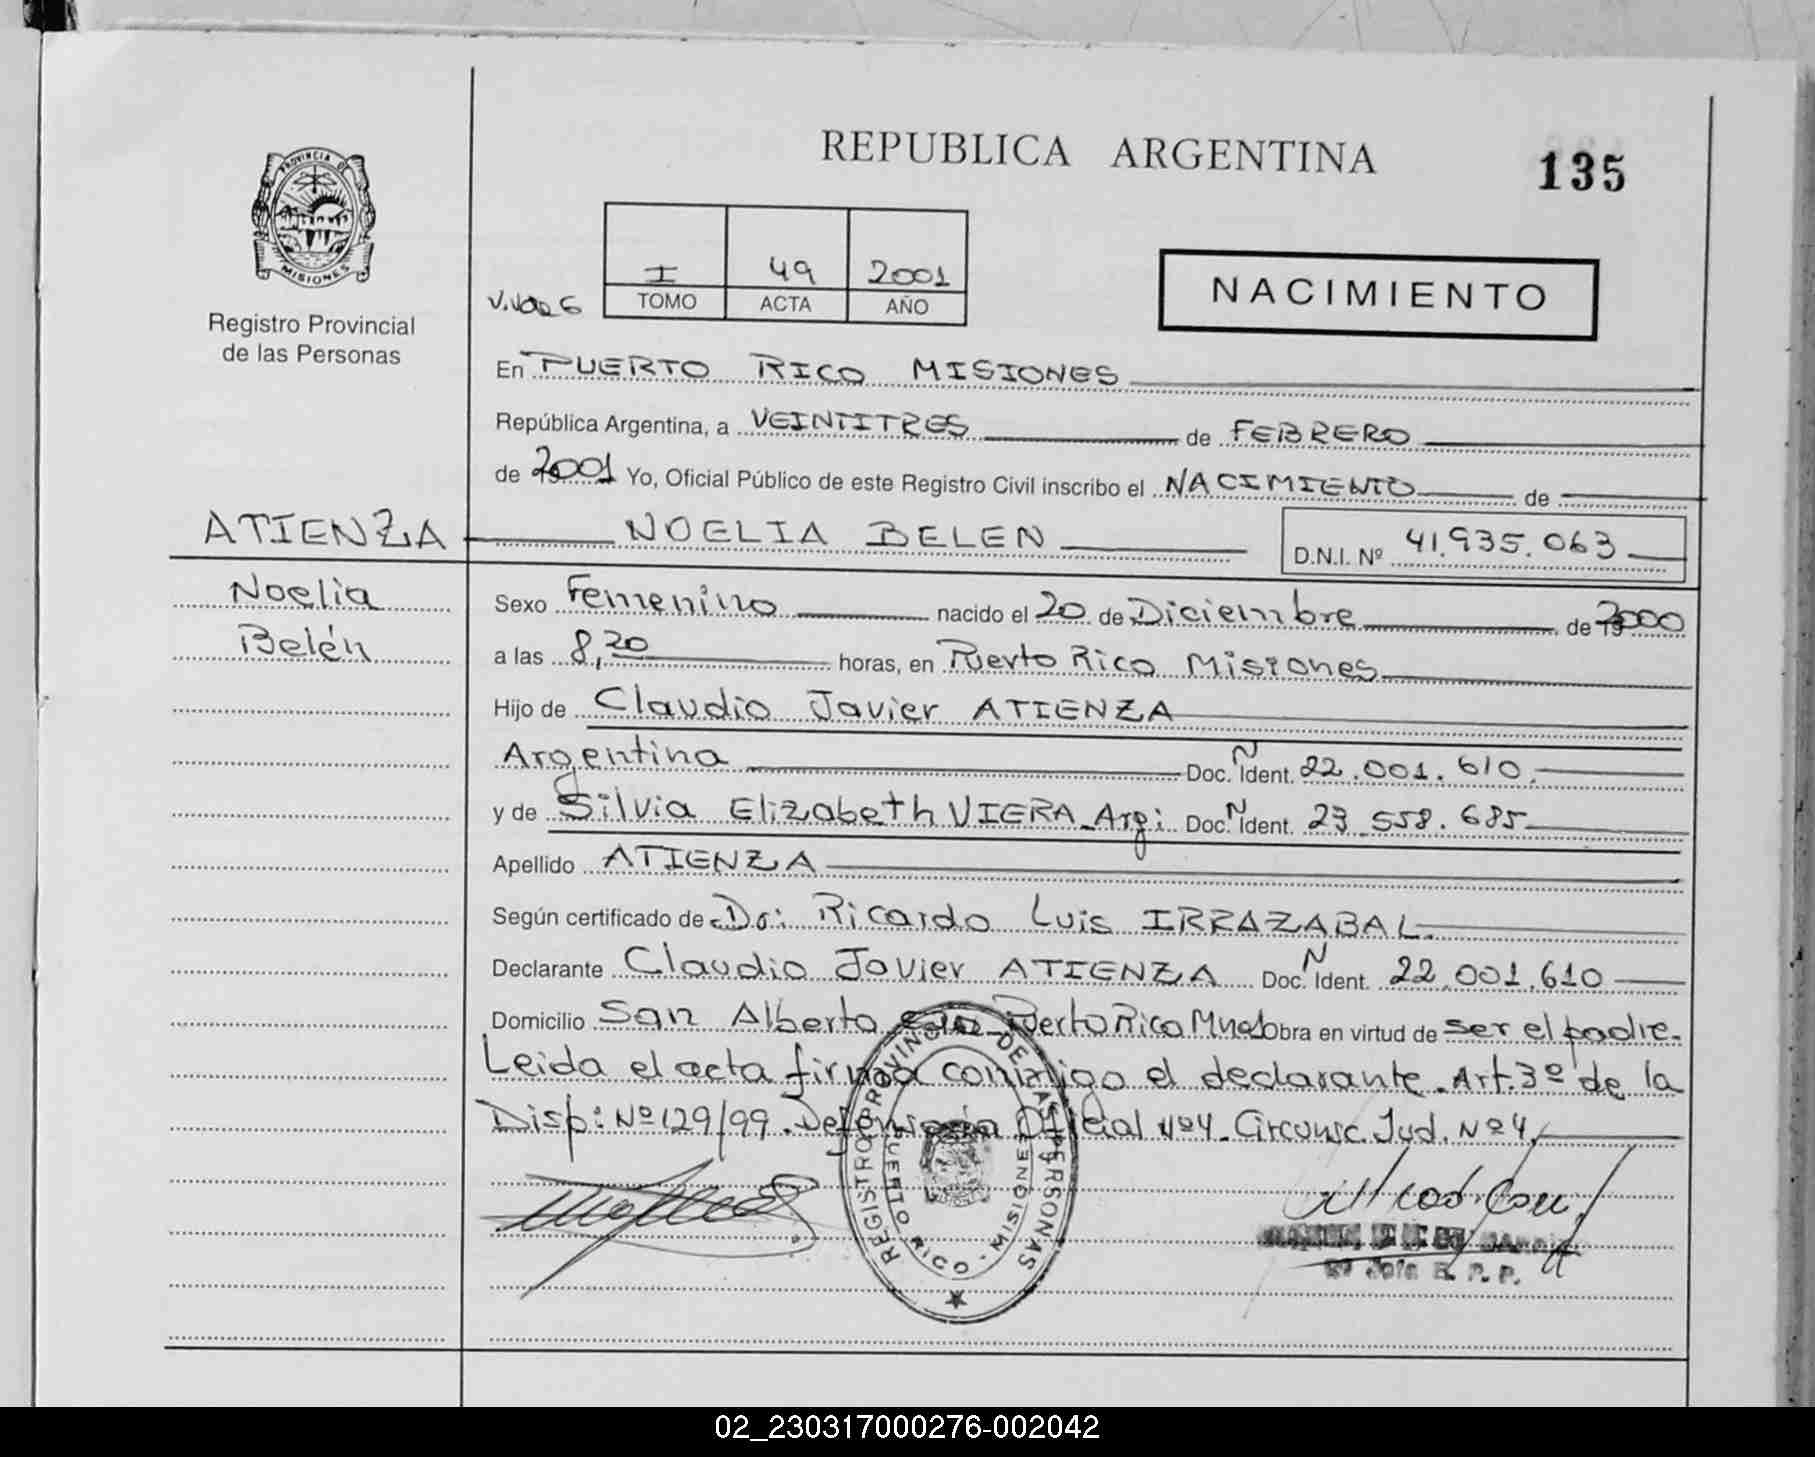 REPUBLICA ARGENTINA
135
PROVINCIA DE MISIONES
Registro Provincial
de las Personas
I 49 2001
TOMO ACTA AÑO
NACIMIENTO
En PUERTO RICO MISIONES
República Argentina, a VEINTITRES de FEBRERO
de 2001 Yo, Oficial Público de este Registro Civil inscribo el NACIMIENTO de
ATIENZA NOELIA BELEN D.N.I. Nº 41.935.063
Noelia
Belén
Sexo Femenino nacido el 20 de Diciembre de 2000
a las 8,20 horas, en Puerto Rico Misiones
Hijo de Claudio Javier ATIENZA
Argentina Doc. N Ident. 22.001.610.
y de Silvia Elizabeth VIERA Arg: Doc. N Ident. 23.558.685
Apellido ATIENZA
Según certificado de Dr: Ricardo Luis IRRAZABAL.
Declarante Claudio Javier ATIENZA Doc. N Ident. 22.001.610
Domicilio San Alberto Puerto Rico Mnes Obra en virtud de ser el padre.
Leida el acta firma conmigo el declarante. Art. 3º de la
Disp: Nº 129/99. Defensoria Oficial Nº4. Circunsc. Jud. Nº 4
REGISTRO PROVINCIAL DE LAS PERSONAS
PUERTO RICO - MISIONES
Jefe R. P. P.
02_230317000276-002042